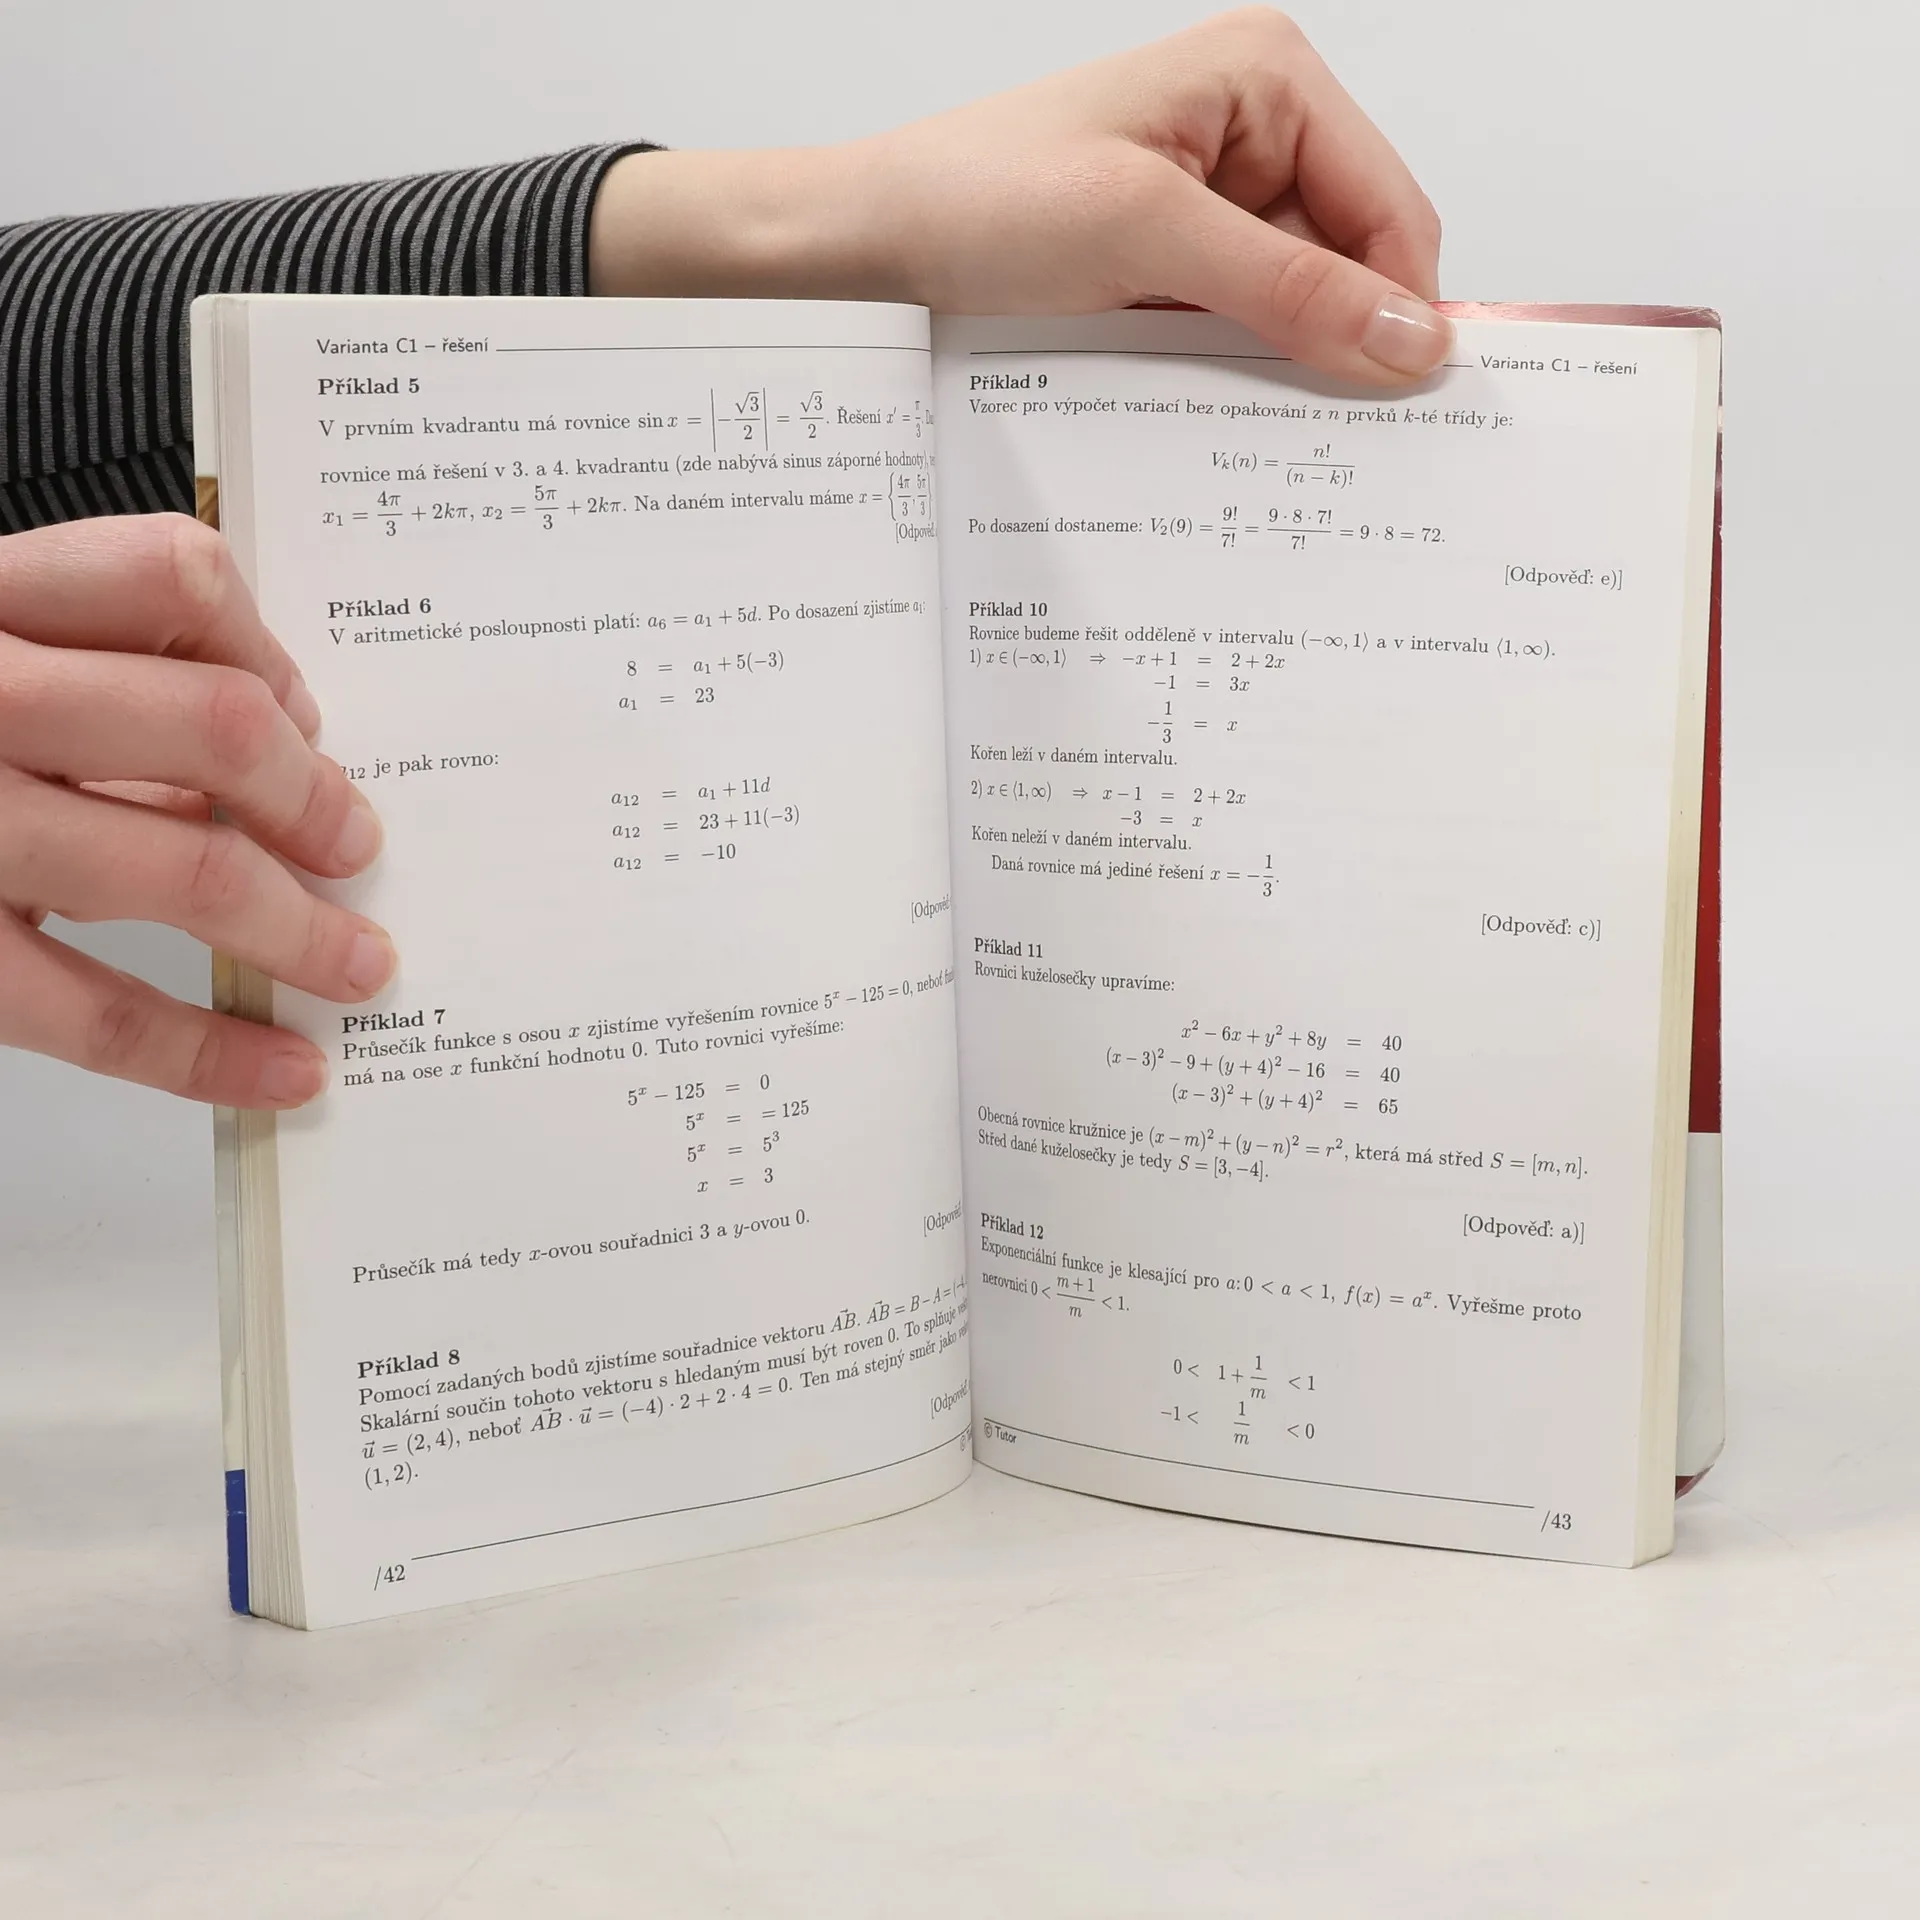 Varianta C1 – řešení
Příklad 5
V prvním kvadrantu má rovnice sin x = |−√3/2| = √3/2. Řešení x′ = π/3.
rovnice má řešení v 3. a 4. kvadrantu (zde nabývá sinus záporné hodnoty),
x₁ = 4π/3 + 2kπ, x₂ = 5π/3 + 2kπ. Na daném intervalu máme x = {4π/3, 5π/3}
[Odpověď:
Příklad 6
V aritmetické posloupnosti platí: a₆ = a₁ + 5d. Po dosazení zjistíme a₁:
8 = a₁ + 5(−3)
a₁ = 23
₁₂ je pak rovno:
a₁₂ = a₁ + 11d
a₁₂ = 23 + 11(−3)
a₁₂ = −10
[Odpověď:
Příklad 7
Průsečík funkce s osou x zjistíme vyřešením rovnice 5ˣ − 125 = 0, neboť
má na ose x funkční hodnotu 0. Tuto rovnici vyřešíme:
5ˣ − 125 = 0
5ˣ = = 125
5ˣ = 5³
x = 3
Průsečík má tedy x-ovou souřadnici 3 a y-ovou 0.
[Odpověď:
Příklad 8
Pomocí zadaných bodů zjistíme souřadnice vektoru A⃗B. A⃗B = B − A = (−4,
Skalární součin tohoto vektoru s hledaným musí být roven 0. To splňuje
u⃗ = (2, 4), neboť A⃗B · u⃗ = (−4) · 2 + 2 · 4 = 0. Ten má stejný směr jako
(1, 2).
[Odpověď:
©
/42
Varianta C1 – řešení
Příklad 9
Vzorec pro výpočet variací bez opakování z n prvků k-té třídy je:
Vₖ(n) = n!/(n − k)!
Po dosazení dostaneme: V₂(9) = 9!/7! = 9 · 8 · 7!/7! = 9 · 8 = 72.
[Odpověď: e)]
Příklad 10
Rovnice budeme řešit odděleně v intervalu (−∞, 1⟩ a v intervalu ⟨1, ∞).
1) x ∈ (−∞, 1⟩ ⇒ −x + 1 = 2 + 2x
−1 = 3x
−1/3 = x
Kořen leží v daném intervalu.
2) x ∈ ⟨1, ∞) ⇒ x − 1 = 2 + 2x
−3 = x
Kořen neleží v daném intervalu.
Daná rovnice má jediné řešení x = −1/3.
[Odpověď: c)]
Příklad 11
Rovnici kuželosečky upravíme:
x² − 6x + y² + 8y = 40
(x − 3)² − 9 + (y + 4)² − 16 = 40
(x − 3)² + (y + 4)² = 65
Obecná rovnice kružnice je (x − m)² + (y − n)² = r², která má střed S = [m, n].
Střed dané kuželosečky je tedy S = [3, −4].
[Odpověď: a)]
Příklad 12
Exponenciální funkce je klesající pro a: 0 < a < 1, f(x) = aˣ. Vyřešme proto
nerovnici 0 < (m + 1)/m < 1.
0 < 1 + 1/m < 1
−1 < 1/m < 0
© Tutor
/43